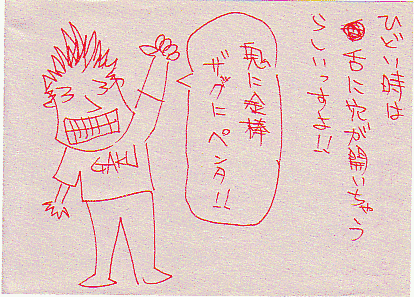 ひどい時は
舌に穴が開いちゃう
らしいっすよ!!
鬼に金棒
ザックにペンタ!!
GAKU